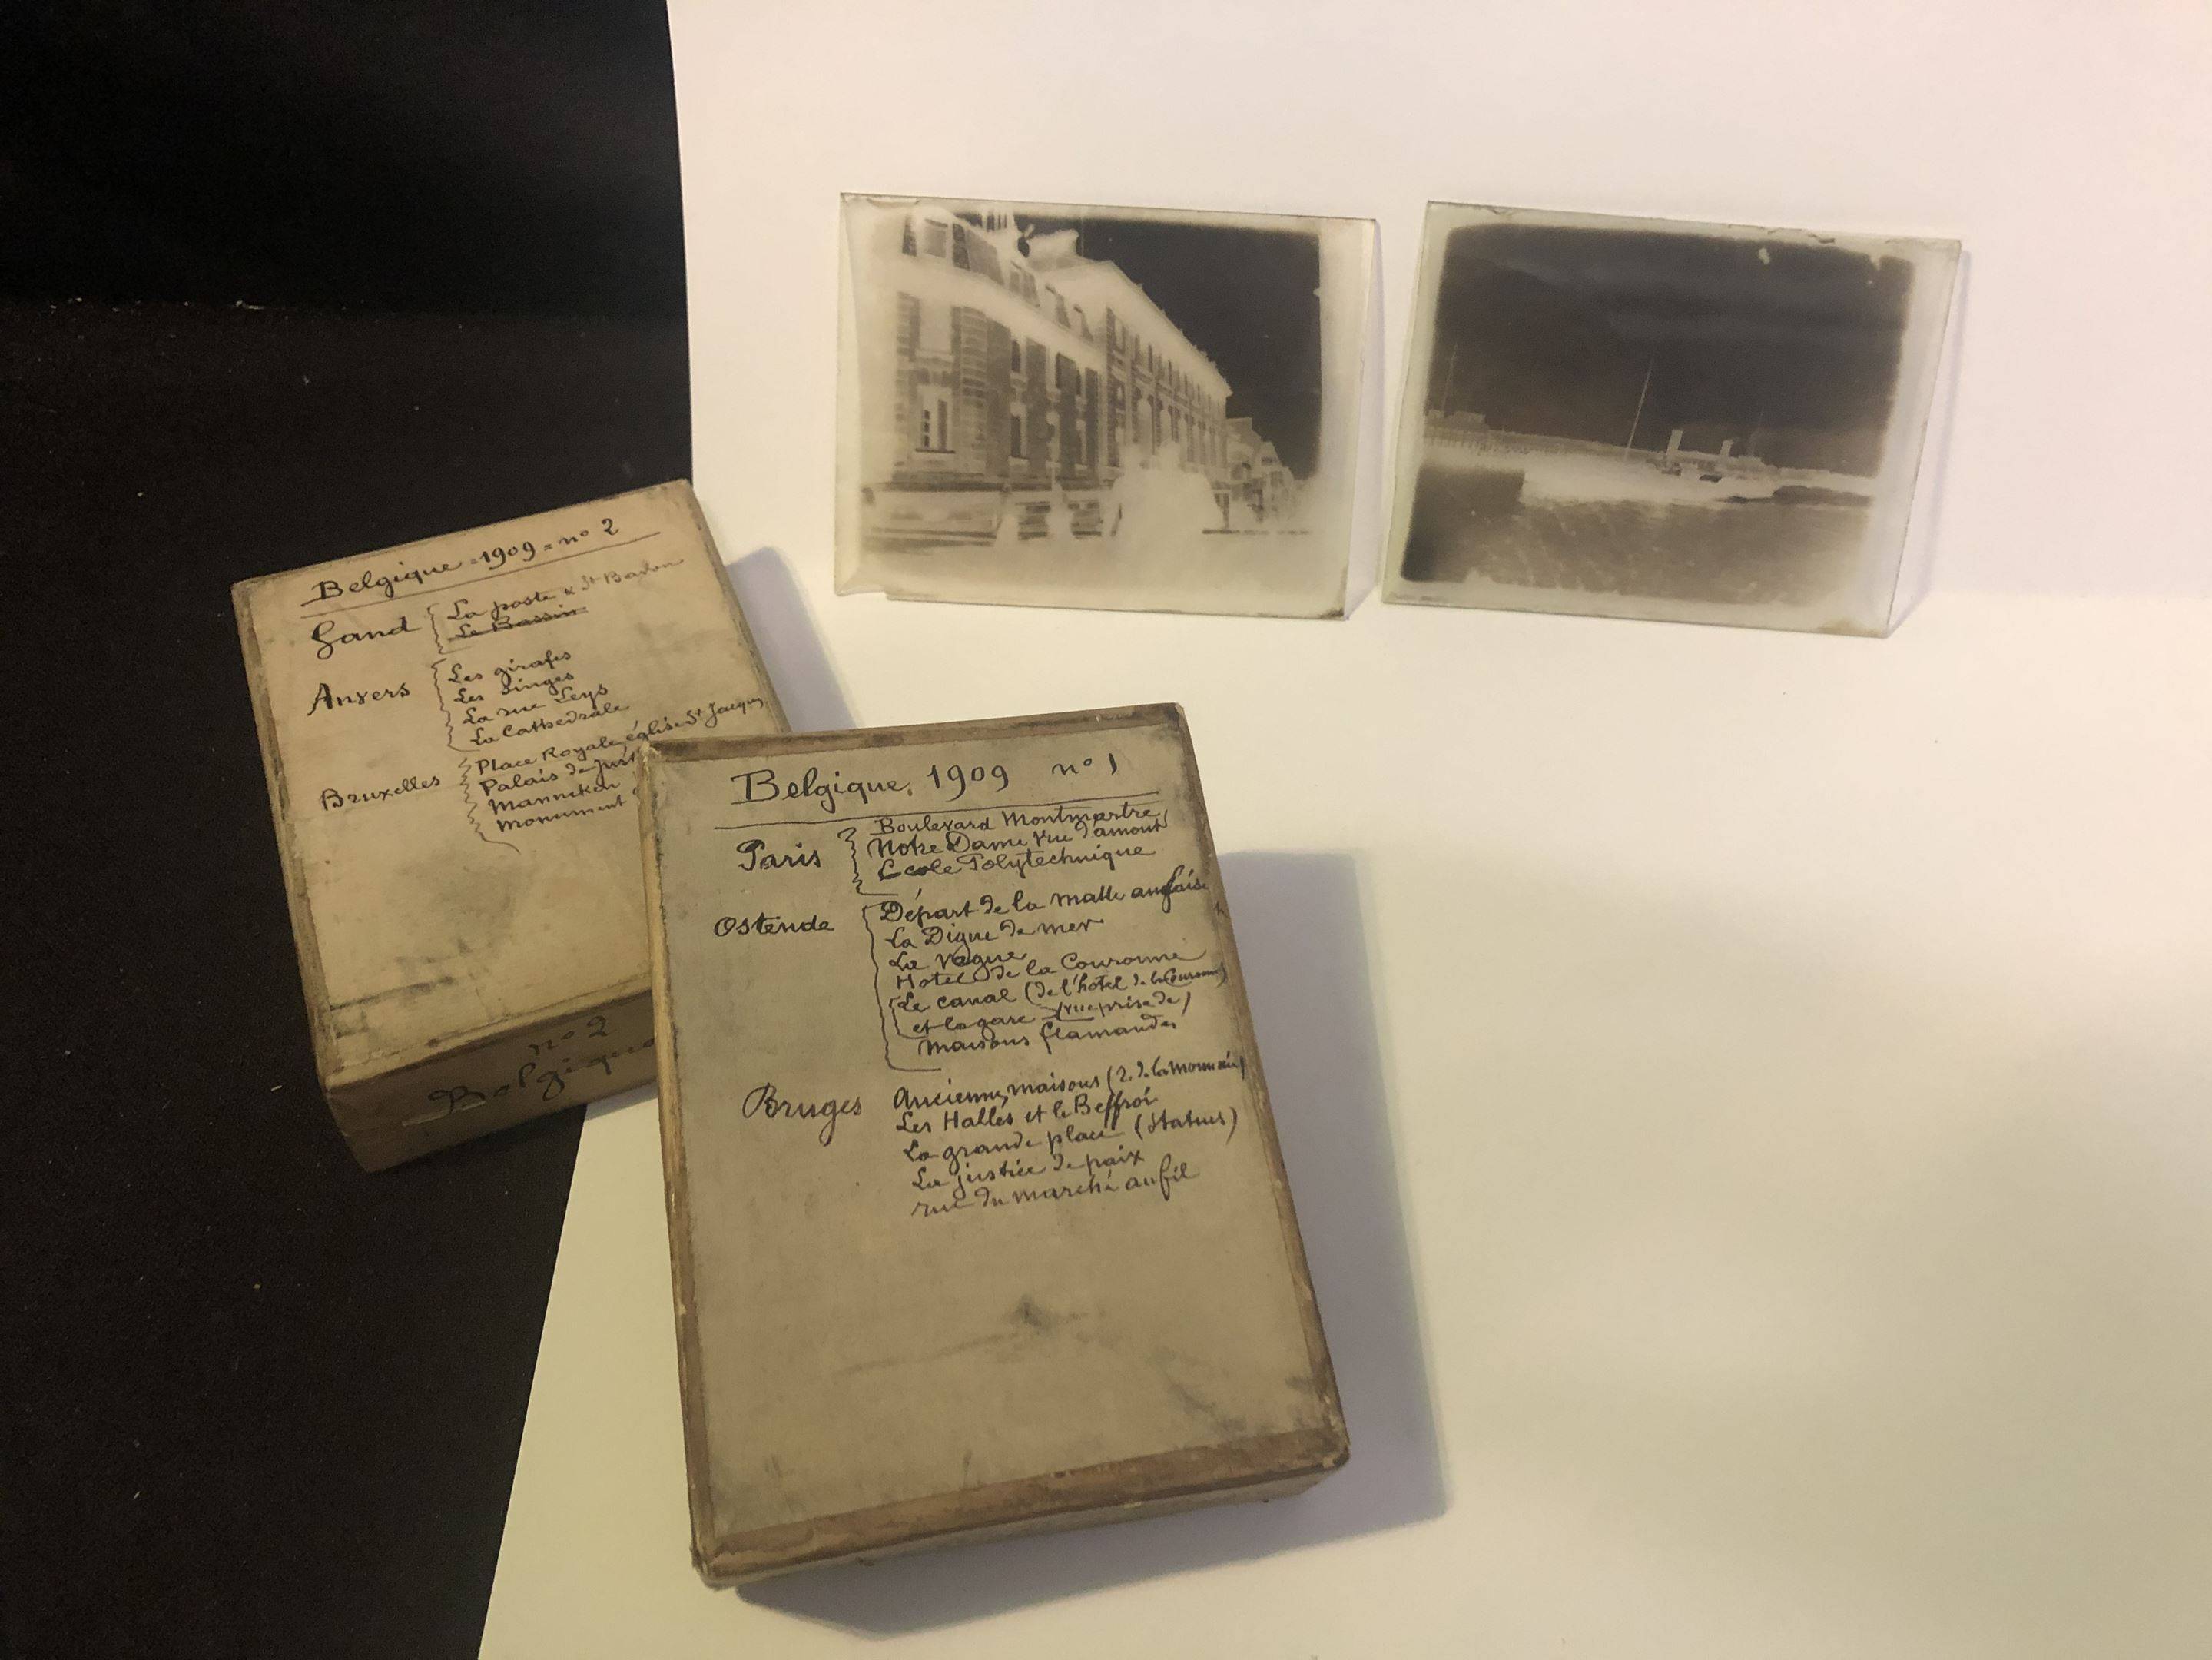 Belgique - 1909 - no 2
Gand
La poste & St Bavon
Le Bassin
Anvers
Les girafes
Les singes
La rue Leys
La Cathédrale
Bruxelles
Place Royale église St Jacques
Palais de just
Manneken
Monument
no 2
Belgique
Belgique, 1909 no 1
Paris
Boulevard Montmartre
Notre Dame vue d'amont
Ecole Polytechnique
Ostende
Départ de la malle anglaise
La Digue de mer
La Vague
Hotel de la Couronne
Le canal (de l'hotel de la Couronne)
et la gare (vue prise de)
Maisons flamandes
Bruges
Anciennes maisons (r. de la Monnaie)
Les Halles et le Beffroi
La grande place (statues)
La justice de paix
rue du marché au fil